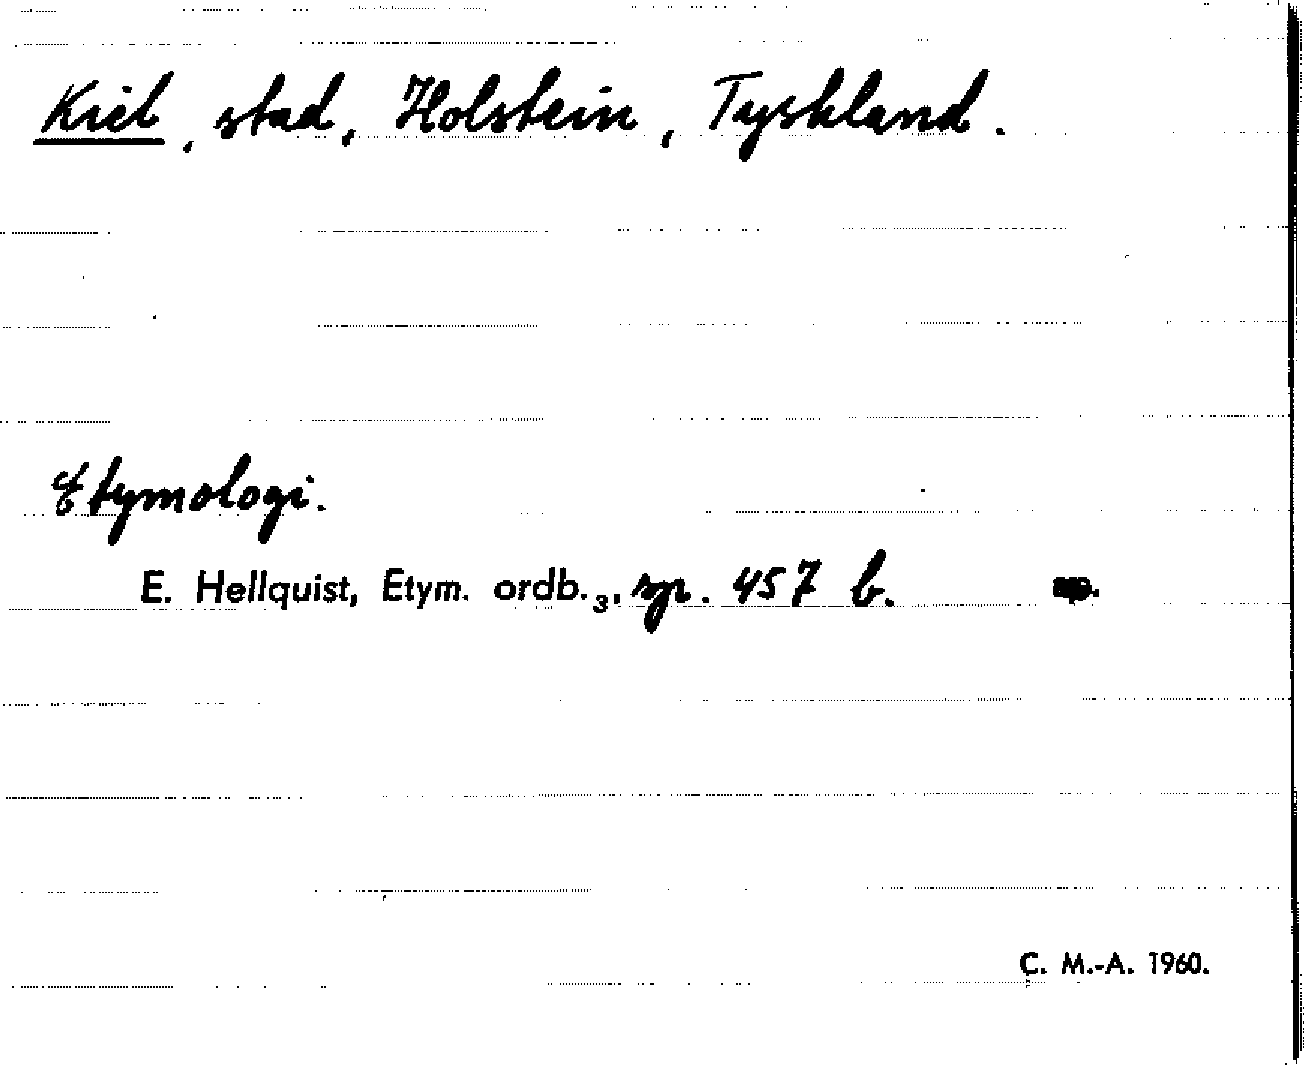 Kiel, stad, Holstein, Tyskland.
Etymologi.
E. Hellquist, Etym. ordb.₃, sp. 457 b.
C. M.-A. 1960.